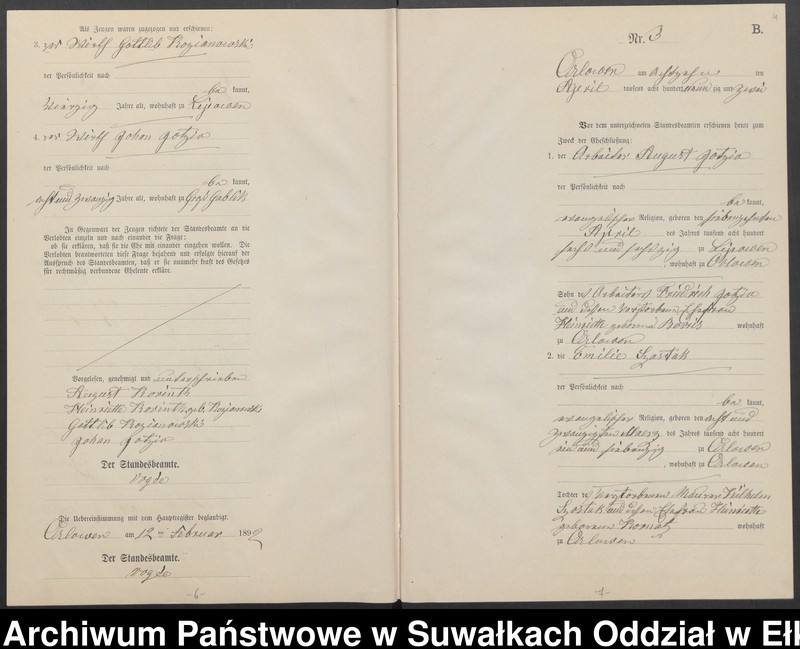 Als Zeugen waren zugezogen und erschienen:
3. der Wirth Gottlieb Rozianowski
der Persönlichkeit nach
be kannt,
vierzig Jahre alt, wohnhaft zu Lipowen
4. der Wirth Johan Jotzio
der Persönlichkeit nach
be kannt,
acht und zwanzig Jahre alt, wohnhaft zu Groß Gablick
In Gegenwart der Zeugen richtete der Standesbeamte an die
Verlobten einzeln und nach einander die Frage:
ob sie erklären, daß sie die Ehe mit einander eingehen wollen. Die
Verlobten beantworteten diese Frage bejahend und erfolgte hierauf der
Ausspruch des Standesbeamten, daß er sie nunmehr kraft des Gesetzes
für rechtmäßig verbundene Eheleute erkläre.
Vorgelesen, genehmigt und unterschrieben
August Rosinth
Heinriette Rosinth geb. Rozianowski
Gottlieb Rozianowski
Johan Jotzio
Der Standesbeamte.
Vogée
Die Uebereinstimmung mit dem Hauptregister beglaubigt.
Orlowen am 12ten Februar 1892
Der Standesbeamte.
Vogée
-6-
B.
Nr. 3
Orlowen am achtzehn ten
April tausend acht hundert neun zig und zwei
Vor dem unterzeichneten Standesbeamten erschienen heute zum
Zweck der Eheschließung:
1. der Arbeiter August Jotzio
der Persönlichkeit nach
be kannt,
evangelischer Religion, geboren den siebenzehnten
April des Jahres tausend acht hundert
sechs und sechszig zu Lipowen
, wohnhaft zu Orlowen
Sohn des Arbeiters Friedrich Jotzio
und dessen verstorbenen Ehefrau
Heinriette geborene wohnhaft
zu Orlowen
2. die Emilie Szostak
der Persönlichkeit nach
be kannt,
evangelischer Religion, geboren den acht und
zwanzigsten Maerz des Jahres tausend acht hundert
ein und siebenzig zu Orlowen
, wohnhaft zu Orlowen
Tochter des verstorbenen Maurer Wilhelm
Szostak und dessen Ehefrau Heinriette
geborenen wohnhaft
zu Orlowen
Archiwum Państwowe w Suwałkach Oddział w Ełk